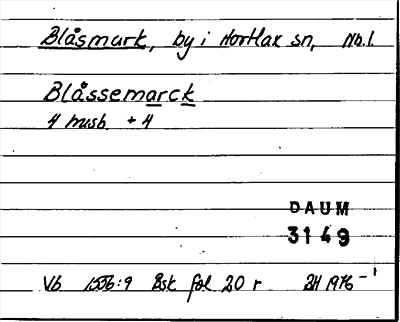 Blåsmark, by i Hortlax sn, Nb.l.
Blåssemarck
4 husb. + 4
DAUM
3149
Vb 1556:9 Bsk fol 20 r BH 1976 -